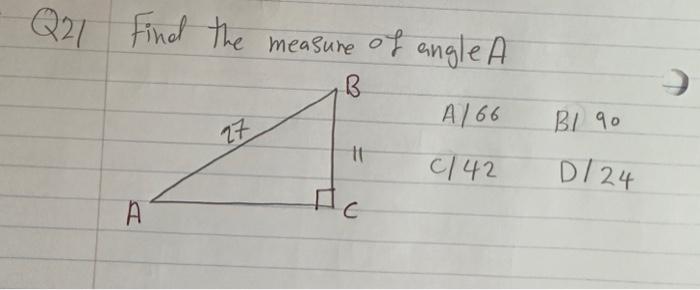 Q21 Find the measure of angle A
B
27
A/ 66 B/ 90
11
C/ 42 D/ 24
A
C